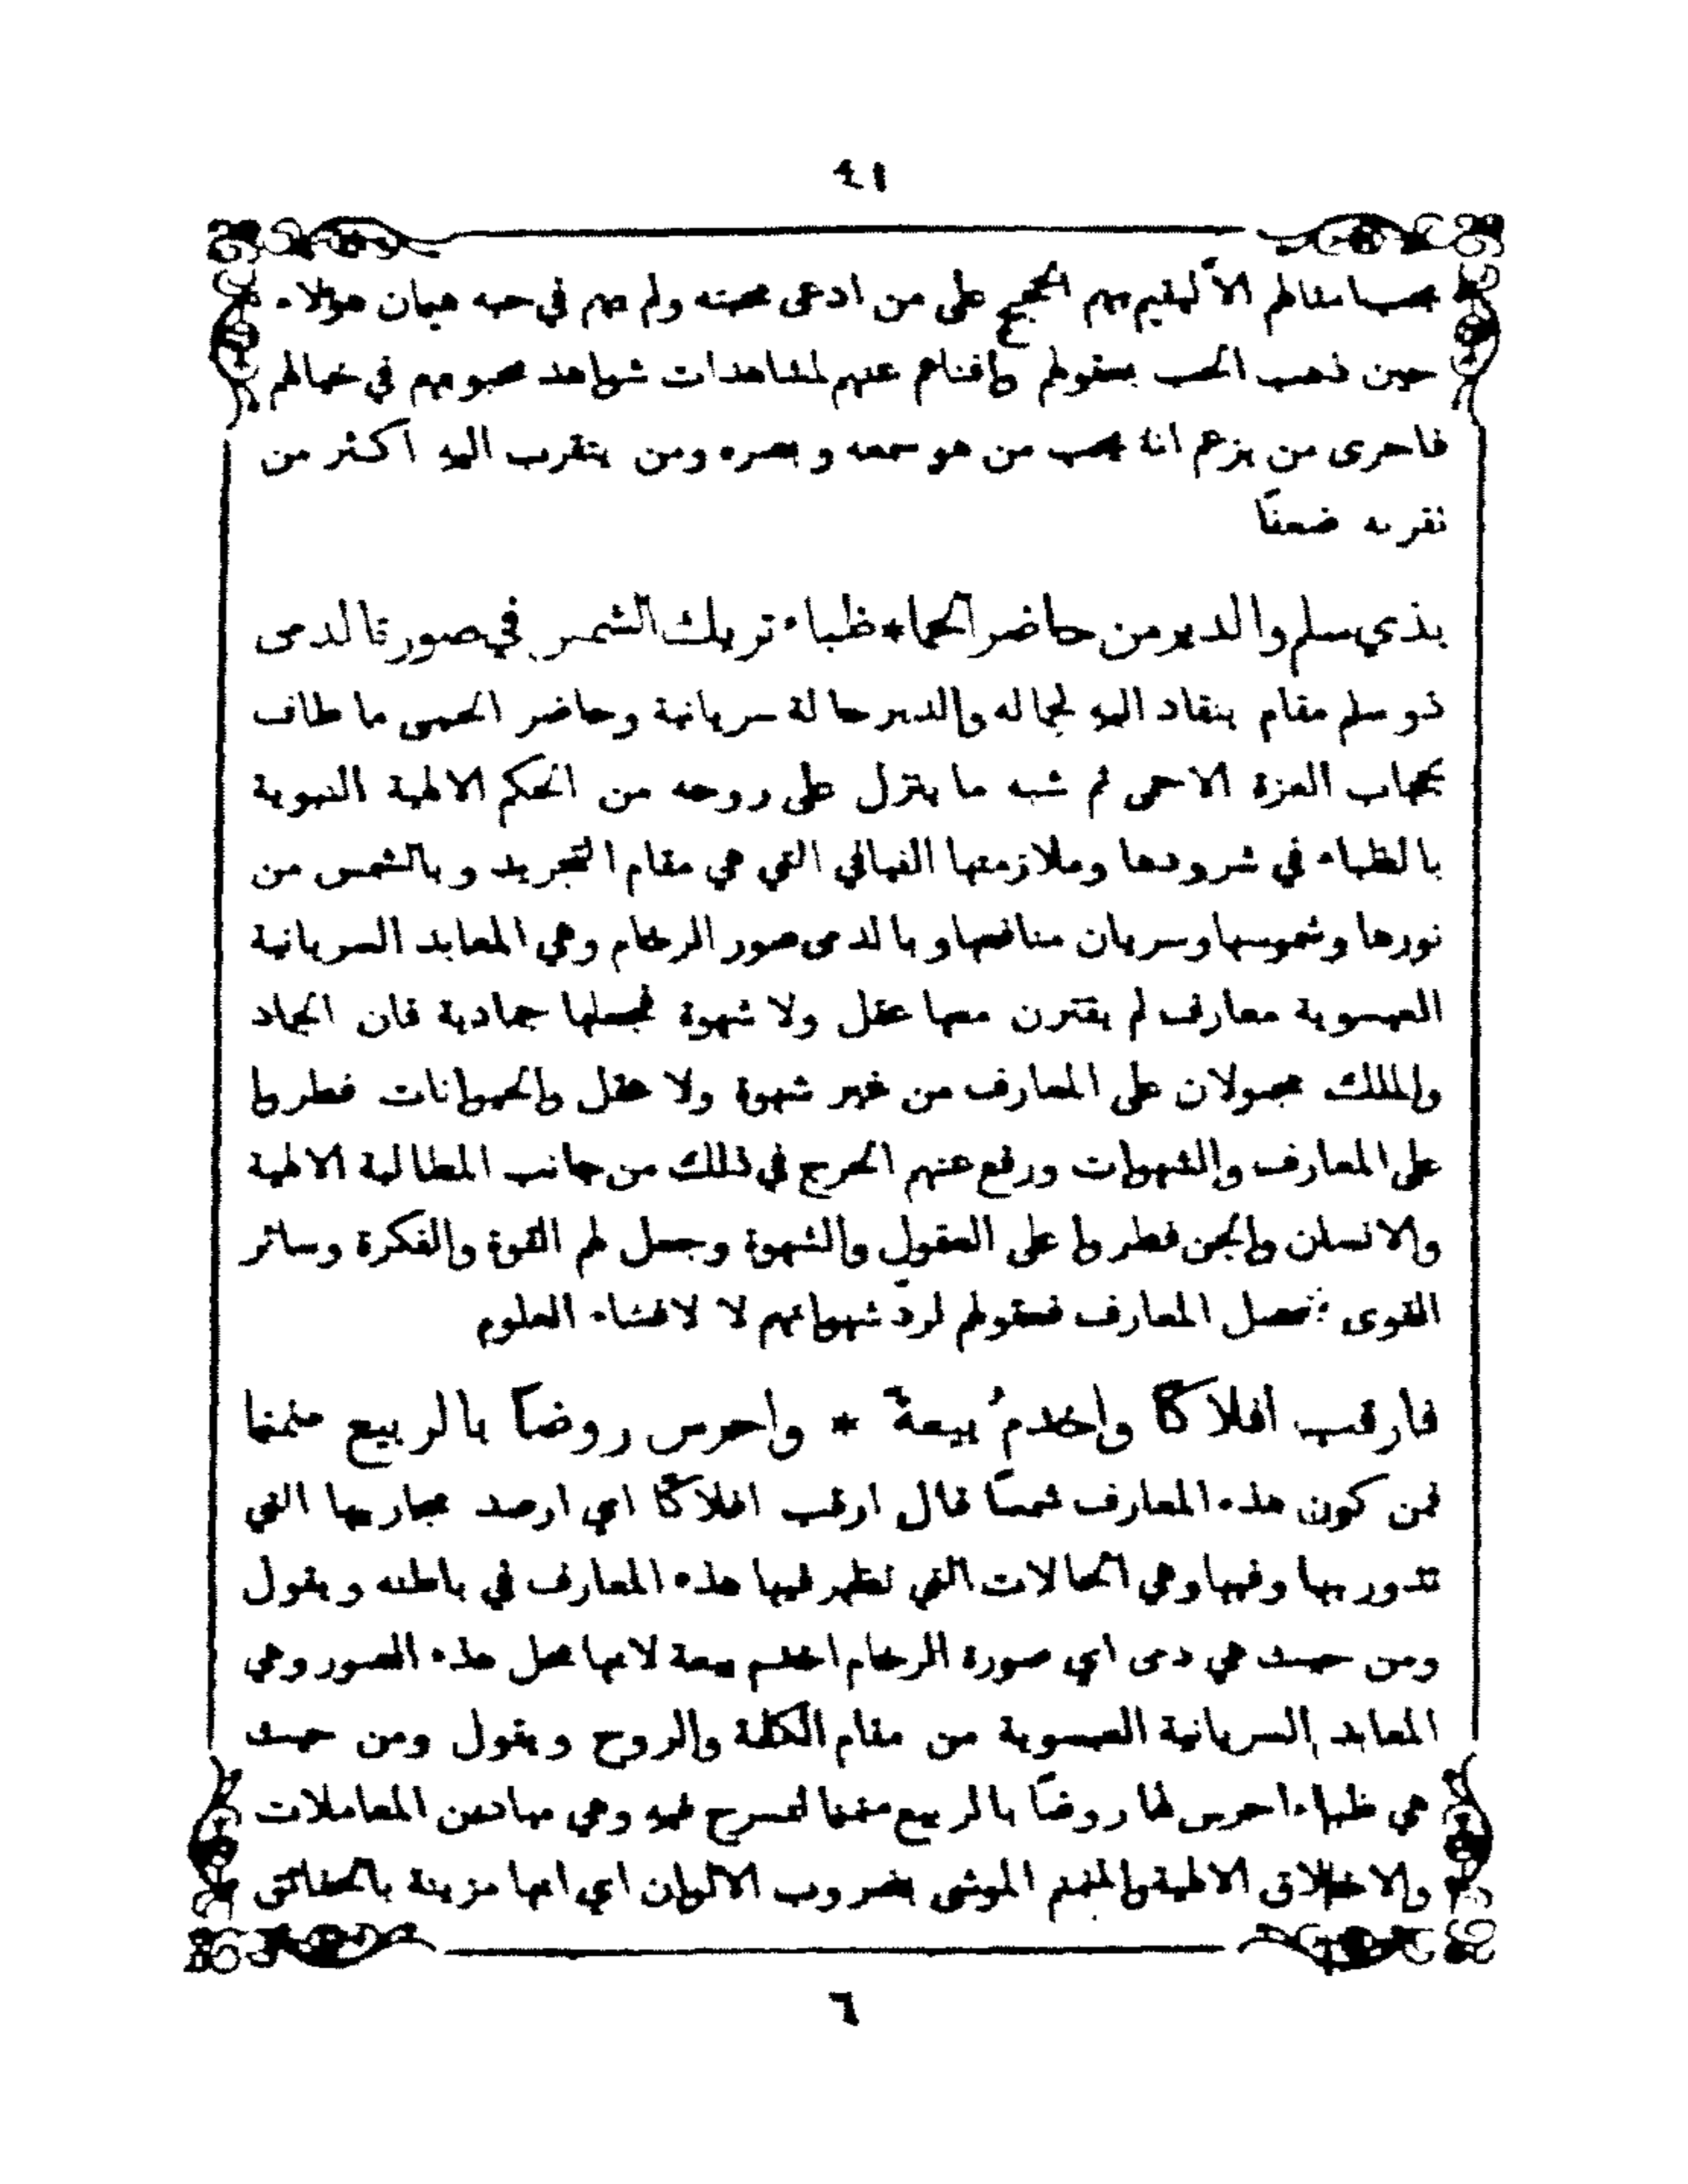 ٤١
بحب امثالهم الا ليقيم بهم الحجج على من ادعى محبته ولم يهم في حبه هيمان هؤلاء
حين ذهب الحب بعقولهم وافناهم عنهم لمشاهدات شواهد محبوبهم في خيالهم
فاحرى من يزعم انه يحب من هو سمعه وبصره ومن يتقرب اليه اكثر من
تقربه ضعفاً
بذي سلم والدير من حاضر الحما * ظباء تريك الشمس في صورة الدمى
ذو سلم مقام ينقاد اليه لجماله والدير حالة سريانية وحاضر الحمى ما طاف
بحجاب العزة الاحمى ثم شبه ما ينزل على روحه من الحكم الالهية النبوية
بالظباء في شرودها وملازمتها الفيافي التي هي مقام التجريد وبالشمس من
نورها وشموسها وسريان منافعها وبالدمى صور الرخام وهي المعابد السريانية
العيسوية معارف لم يقترن معها عقل ولا شهوة فجعلها جمادية فان الجماد
والملك مجبولان على المعارف من غير شهوة ولا عقل والحيوانات فطروا
على المعارف والشهوات ورفع عنهم الحرج في ذلك من جانب المطالبة الالهية
والانسان والجن فطروا على العقول والشهوة وجعل لهم القوة والفكرة وسائر
القوى لتحصل المعارف فعقولهم لردّ شهواتهم لا لاقتناء العلوم
فارقب افلاكاً واخدمُ بيعةً * واحرس روضاً بالربيع منمنما
فمن كون هذه المعارف شمساً قال ارقب افلاكاً اي ارصد مجاريها التي
تدور بها وفيها وهي الحالات التي تظهر فيها هذه المعارف في باطنه ويقول
ومن حيث هي دمى اي صورة الرخام اخدم بيعة لانها محل هذه الصور وهي
المعابد السريانية العيسوية من مقام الكلمة والروح ويقول ومن حيث
هي ظباء احرس لها روضاً بالربيع منمنما لتسرح فيه وهي ميادين المعاملات
والاخلاق الالهية والمنمنم الموشى بضروب الالوان اي انها مزينة بالحقائق
٦